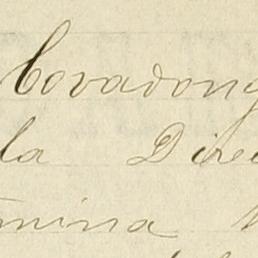 Covadong
la Direc
mina